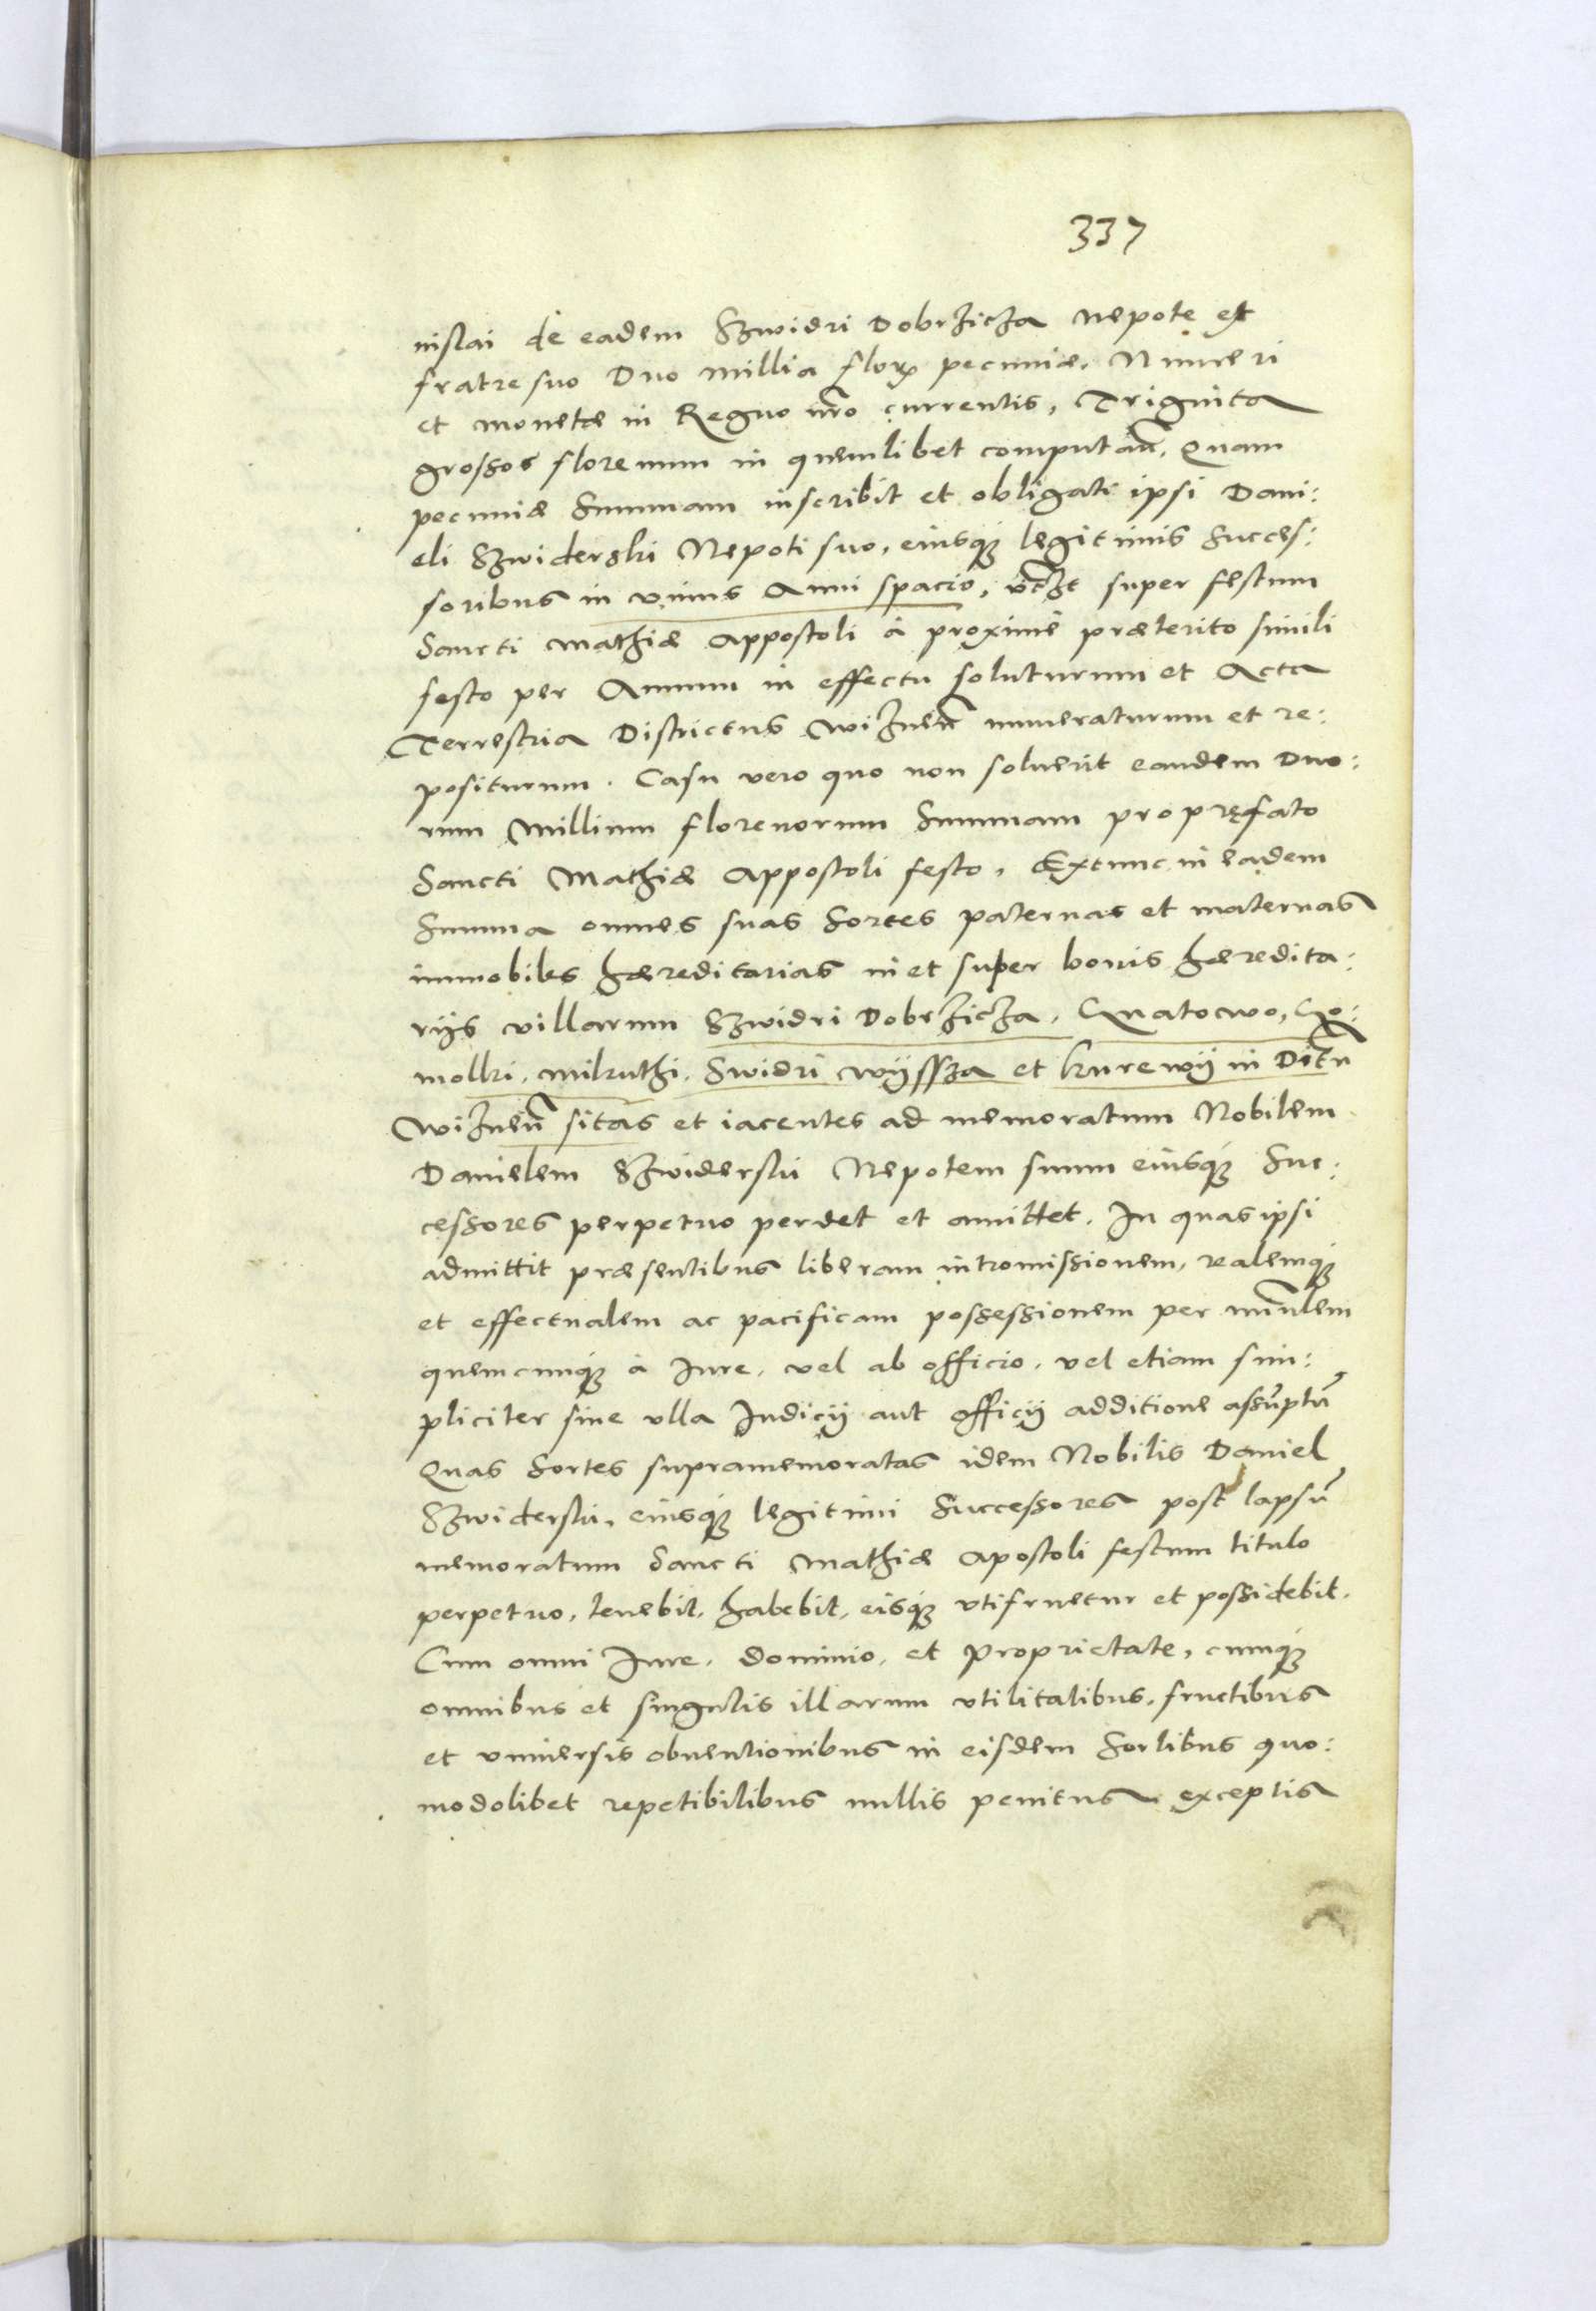 337
nislai de eadem Szwidri Dobrzicza nepote et
fratre suo Duo millia flor pecuniæ. Numeri
et monetæ in Regno nro currentis, Triginta
grossos florenum in quemlibet computan̄. Quam
pecuniæ Summam inscribit et obligati ipsi Dani:
eli Szwiderski Nepoti suo, eiusq̃ legitimis Succes:
soribus in vnius Anni spacio, vtzt super festum
Sancti Mathiæ Appostoli à proximè præterito simili
festo per Annum in effectu soluturum et Acta
Terrestria Districtus Wiznen̄ numeraturum et re:
positurum. Casu vero quo non soluerit eandem Duo:
rum Millium florenorum Summam pro pręfato
Sancti Mathiæ Appostoli festo. Extunc in eadem
Summa omnes suas Sortes paternas et maternas
immobiles hæreditarias in et super bonis hæredita:
rijs villarum Szwidri Dobrzicza,
molki. Milruthi. Swidri wÿssza et kurewÿ in Ditu
Wiznen̄ sitas et iacentes ad memoratum Nobilem
Danielem Szwiderski Nepotem suum eiusq̃ Suc:
cessores perpetuo perdet et amittet. In quas ipsi
admittit præsentibus liberam intromissionem, realemq̃
et effectualem ac pacificam possessionem per
quemcunq̃ à Iure, vel ab officio, vel etiam sim:
pliciter sine vlla Iudicÿ aut officÿ additione assūptū
Quas Sortes supramemoratas idem Nobilis Daniel
Szwiderski, eiusq̃ legitimi Successores post lapsū
memoratum Sancti Mathiæ Apostoli festum titulo
perpetuo, tenebit, habebit, eisq̃ vtifruetur et possidebit.
Cum omni Iure, dominio, et proprietate, cumq̃
omnibus et singulis illarum vtilitatibus, fructibus
et vniuersis obuentionibus in eisdem Sortibus quo:
modolibet repetibilibus nullis penitus exceptis